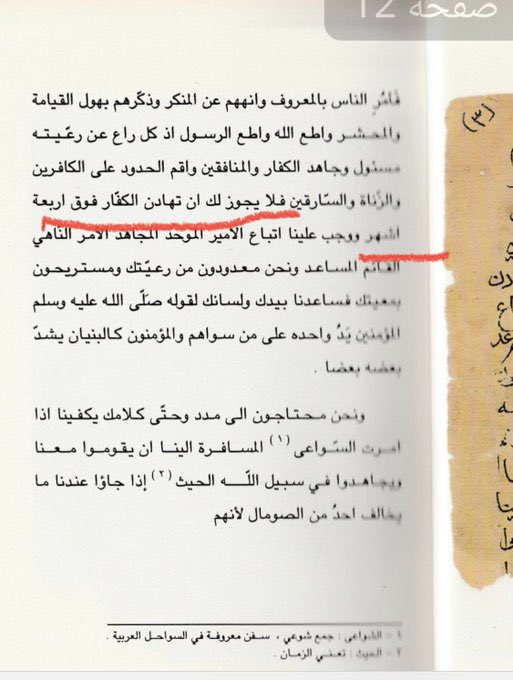 صفحة 12
فأمُرِ الناس بالمعروف وانههم عن المنكر وذكّرهم بهول القيامة
والمحشر واطع الله واطع الرسول اذ كل راع عن رعيّته
مسئول وجاهد الكفار والمنافقين واقم الحدود على الكافرين
والزُناة والسّارقين فلا يجوز لك ان تهادن الكفّار فوق اربعة
اشهر ووجب علينا اتباع الأمير الموحّد المجاهد الآمر الناهي
القائم المساعد ونحن معدودون من رعيّتك ومستريحون
بمعيتك فساعدنا بيدك ولسانك لقوله صلّى الله عليه وسلم
المؤمنين يَدُ واحده على من سواهم والمؤمنون كالبنيان يشدّ
بعضه بعضا .
ونحن محتاجون الى مدد وحتّى كلامك يكفينا اذا
امرت السّواعى (١) المسافرة الينا ان يقوموا معنا
ويجاهدوا في سبيل اللّه الحيث (٢) إذا جاؤا عندنا ما
يخالف احدُ من الصومال لأنهم
١ - الشواعى : جمع شوعي ، سفن معروفة في السواحل العربية .
٢ - الحيث : تعني الزمان .
(٣)